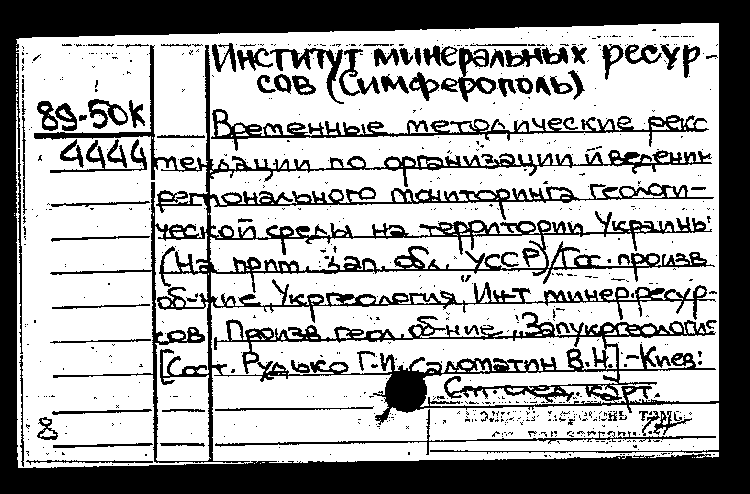 Институт минеральных ресур-
сов (Симферополь)
89-50К
4444
Временные методические реко
мендации по организации и ведению
регионального мониторинга геологи-
ческой среды на территории Украины
(На прим. зап. обл. УССР)/Гос. произв
об-ние "Укргеология", Ин-т минер. ресур-
сов, Произв. геол. об-ние "Запукргеология
[Сост. Рудько Г.И. Саломатин В.Н.].-Киев:
См. след. карт.
Полный перечень томов
см. под заглавием
8